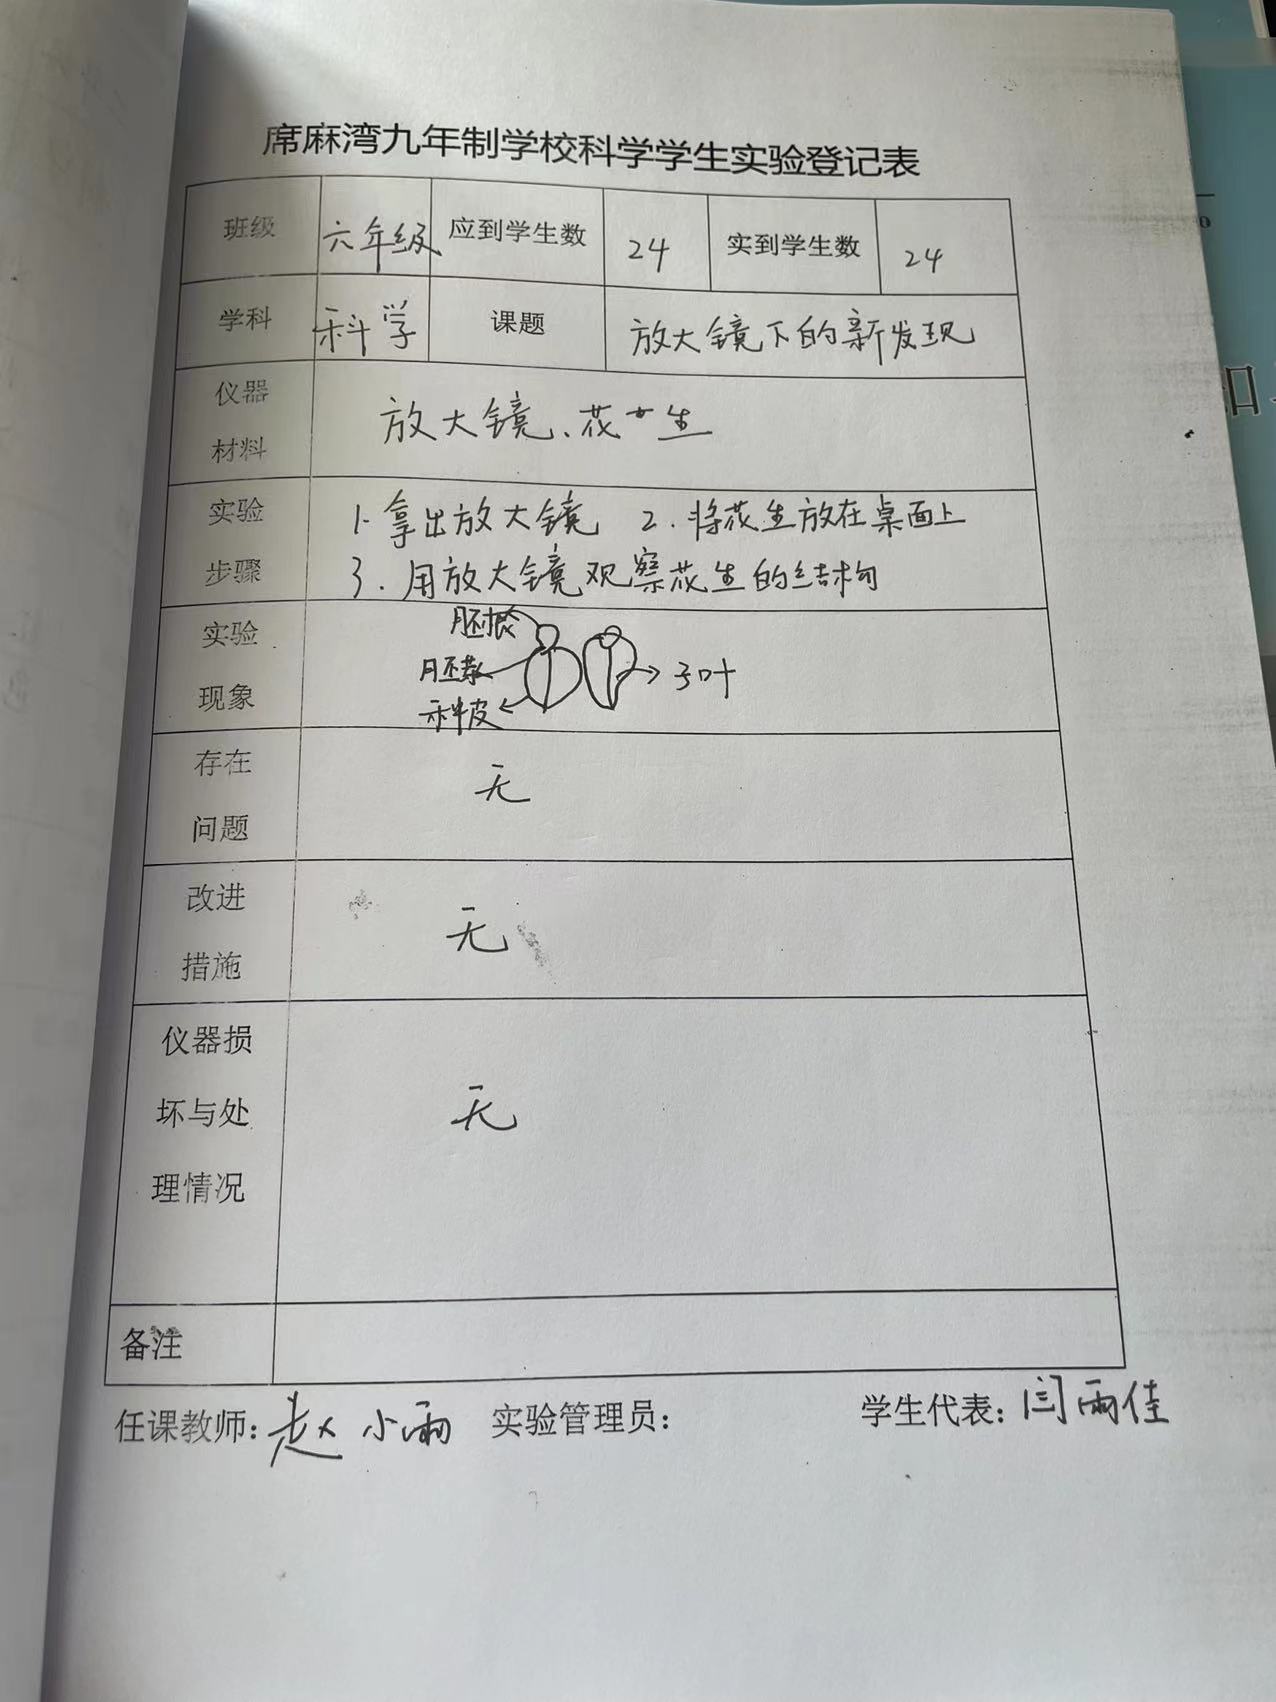 席麻湾九年制学校科学学生实验登记表
班级 六年级 应到学生数 24 实到学生数 24
学科 科学 课题 放大镜下的新发现
仪器
材料
放大镜、花生
实验
步骤
1. 拿出放大镜 2. 将花生放在桌面上
3. 用放大镜观察花生的结构
实验
现象
胚根
胚芽
种皮
子叶
存在
问题
无
改进
措施
无
仪器损
坏与处
理情况
无
备注
任课教师：赵小雨 实验管理员： 学生代表：闫雨佳